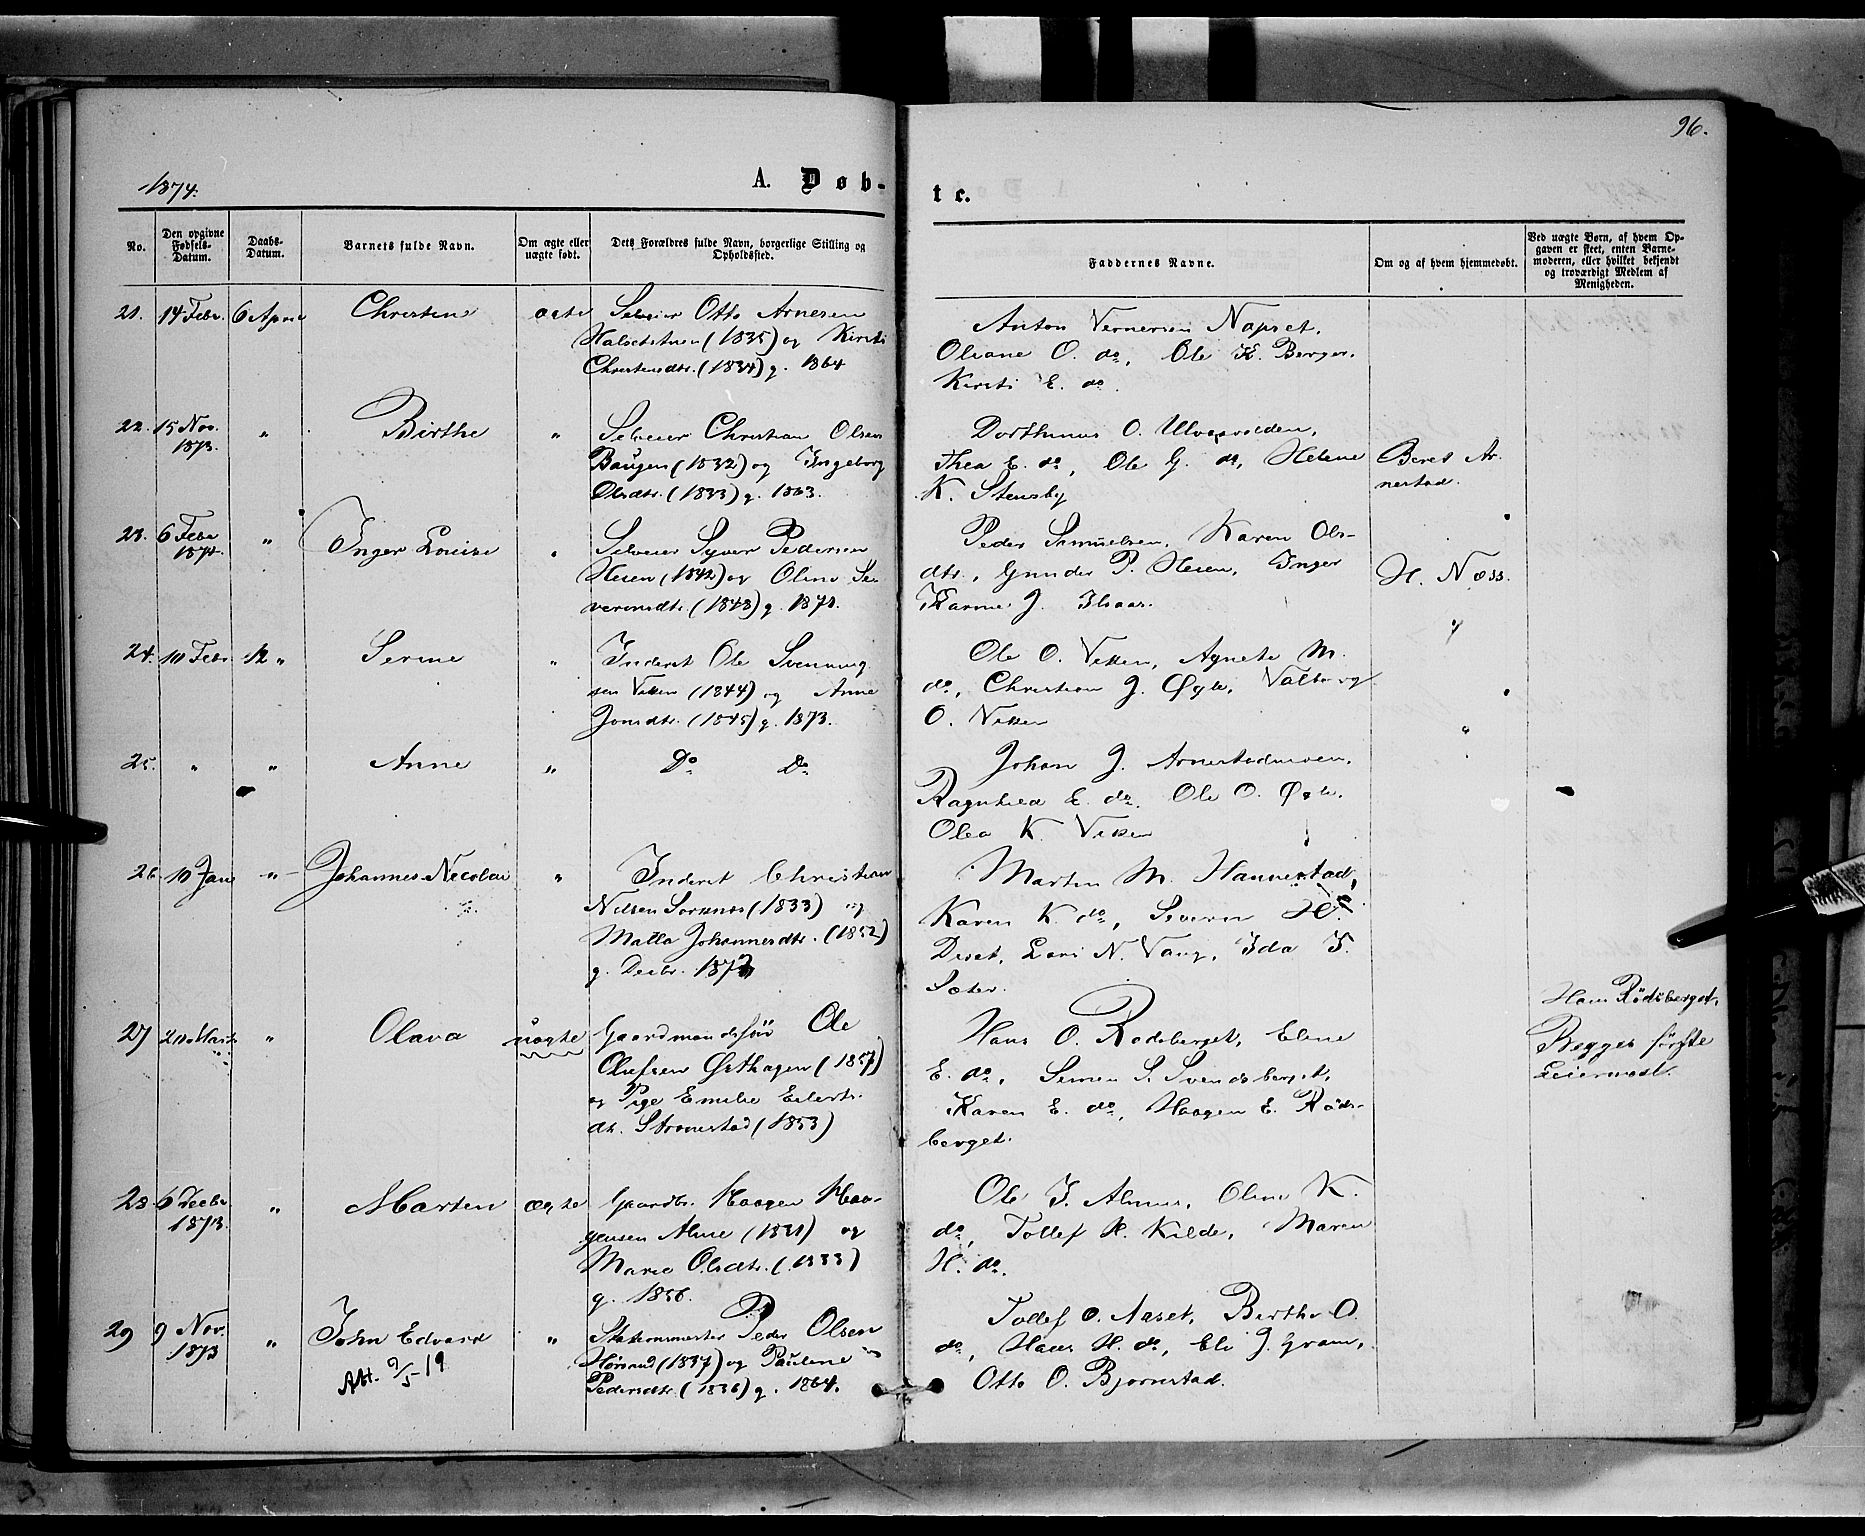 96.
1874.
A. Døb-
te.
No.
Den opgivne Fødsels-Datum.
Daabs-Datum.
Barnets fulde Navn.
Om ægte eller uægte født.
Dets Forældres fulde Navn, borgerlige Stilling og Opholdssted.
Faddernes Navne.
Om og af hvem hjemmedøbt.
Ved uægte Børn, af hvem Opgaven er skeet, enten Barnemoderen, eller hvilket bekjendt og troværdigt Medlem af Menigheden.
21. 14 Febr. 6 April Christine ægte Selveier Otto Arnesen
(1835) og Kirsti
Christensdtr. (1834) g. 1864
Anton Vernersen Napset,
Oliane O. do, Ole K. Berger,
Kirsti E. do
22. 15 Nov. 1873. " Birthe " Selveier Christian Olsen
Baugen (1832) og Ingeborg
Olsdtr. (1833) g. 1863.
Dorthinus O. Ulvevolden,
Thea E. do, Ole G. do, Helene
K. Stensby
Beret Ar-
nestad.
23. 6 Febr 1874. " Inger Louise " Selveier Syver Pedersen
Hesen (1842) og Oline Se-
verinsdtr. (1848) g. 1873.
Peder Samuelsen, Karen Ols-
dtr., Gunder P. Hesen, Inger
Karine J.
H. Næss.
24. 10 Febr 12 " Serine " Inderst Ole Svenning-
sen Viken (1844) og Anne
Jonsdtr. (1845) g. 1873.
Ole O. Viken, Agnete M.
do, Christian J. Øgle, Valborg
O. Viken
"
25. " " Anne " Do Do
Johan J. Arnestadmoen,
Ragnhild E. do. Ole O. Øgle.
Olea K. Viken
26. 10 Jan " Johannes Nicolai " Inderst Christian
Nilsen Sorknes (1833) og
Matta Johannesdtr. (1852)
g. Decbr. 1873
Martin M. Hannestad,
Karen K do, Severin H.
Deset, Lars N. Vang, Ida I.
Sæter.
27 20 Marts " Olava uægte Gaardmandssøn Ole
Olufsen Østhagen (1857)
og Pige Emilie Eilerts-
dt. Stronestad (1853)
Hans O. Rødsberget, Eline
E. do, Simen S. Svendsberget,
Karen E. do, Haagen E. Røds-
berget.
Hans Rødsberget,
Begges første
Leiermaal.
28 6 Decbr 1873. " Marten ægte Gaardbr. Haagen Haa-
gensen Alme (1831) og
Marie Olsdtr. (1833)
g. 1856.
Ole I. Almes, Oline K.
do, Tollef H. Kilde, Maren
H. do.
29 9 Nov. 1873 " John Edvard " Stationsmester Peder Olsen
Hørsand (1837) og Pauline
Pedersdtr. (1836) g. 1864.
Att. 9/5-19
Tollef O. Aaset, Berthe O.
do, Hans H. do, Eli J. Gram,
Otto O. Bjørnestad.